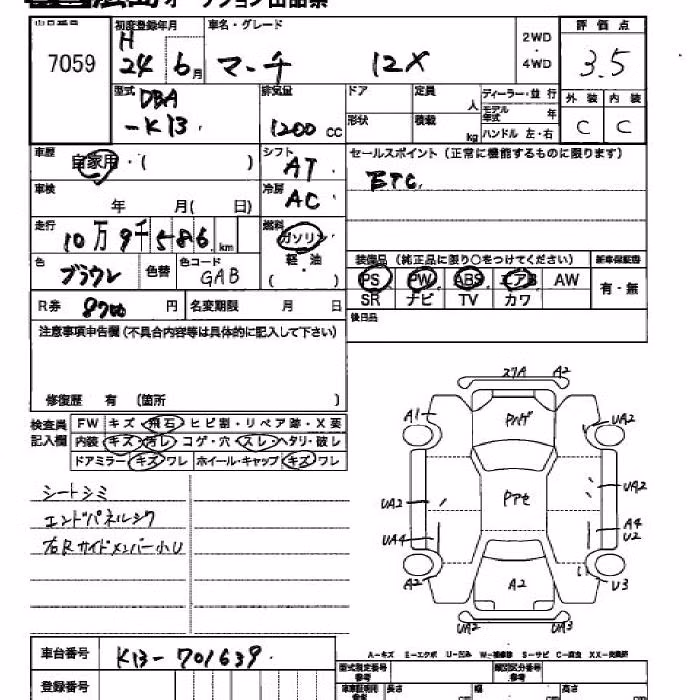 オークション出品票
出品番号
7059
初度登録年月
H
24 6月
車名・グレード
マーチ 12X
2WD
・
4WD
評価点
3.5
型式
DBA
-K13
排気量
1200 cc
ドア
定員
人
形状
積載
kg
ディーラー・並行
モデル年式 年
ハンドル 左・右
外装 内装
C C
車歴
自家用・( )
シフト
AT
セールスポイント (正常に機能するものに限ります)
ETC
車検
年 月( 日)
冷房
AC
走行
10万9千586km
燃料
ガソリン
軽・油
( )
色
ブラウン
色替
色コード
GAB
装備品 (純正品に限り○をつけてください)
新車保証書
PS PW ABS エアB AW
有・無
SR ナビ TV カワ
R券 8700 円
名変期限 月 日
後日品
注意事項申告欄 (不具合内容等は具体的に記入して下さい)
修復歴 有 (箇所 )
検査員記入欄
FW キズ・飛石・ヒビ割・リペア跡・X要
内装 キズ・汚レ・コゲ・穴・スレ・ヘタリ・破レ
ドアミラー・キズ・ワレ ホイール・キャップ・キズ・ワレ
シートシミ
エンドパネルシワ
右Rサイドメンバー小U
27A A2
A1
UA2
UA2
UA2
UA4
A4
U2
A2
A2
U3
UA2
UA3
A-キズ E-エクボ U-凹み W-補修跡 S-サビ C-腐食 XX-交換済
車台番号
K13-701639
登録番号
型式指定番号
類別区分番号
長さ
cm
幅
cm
高さ
cm